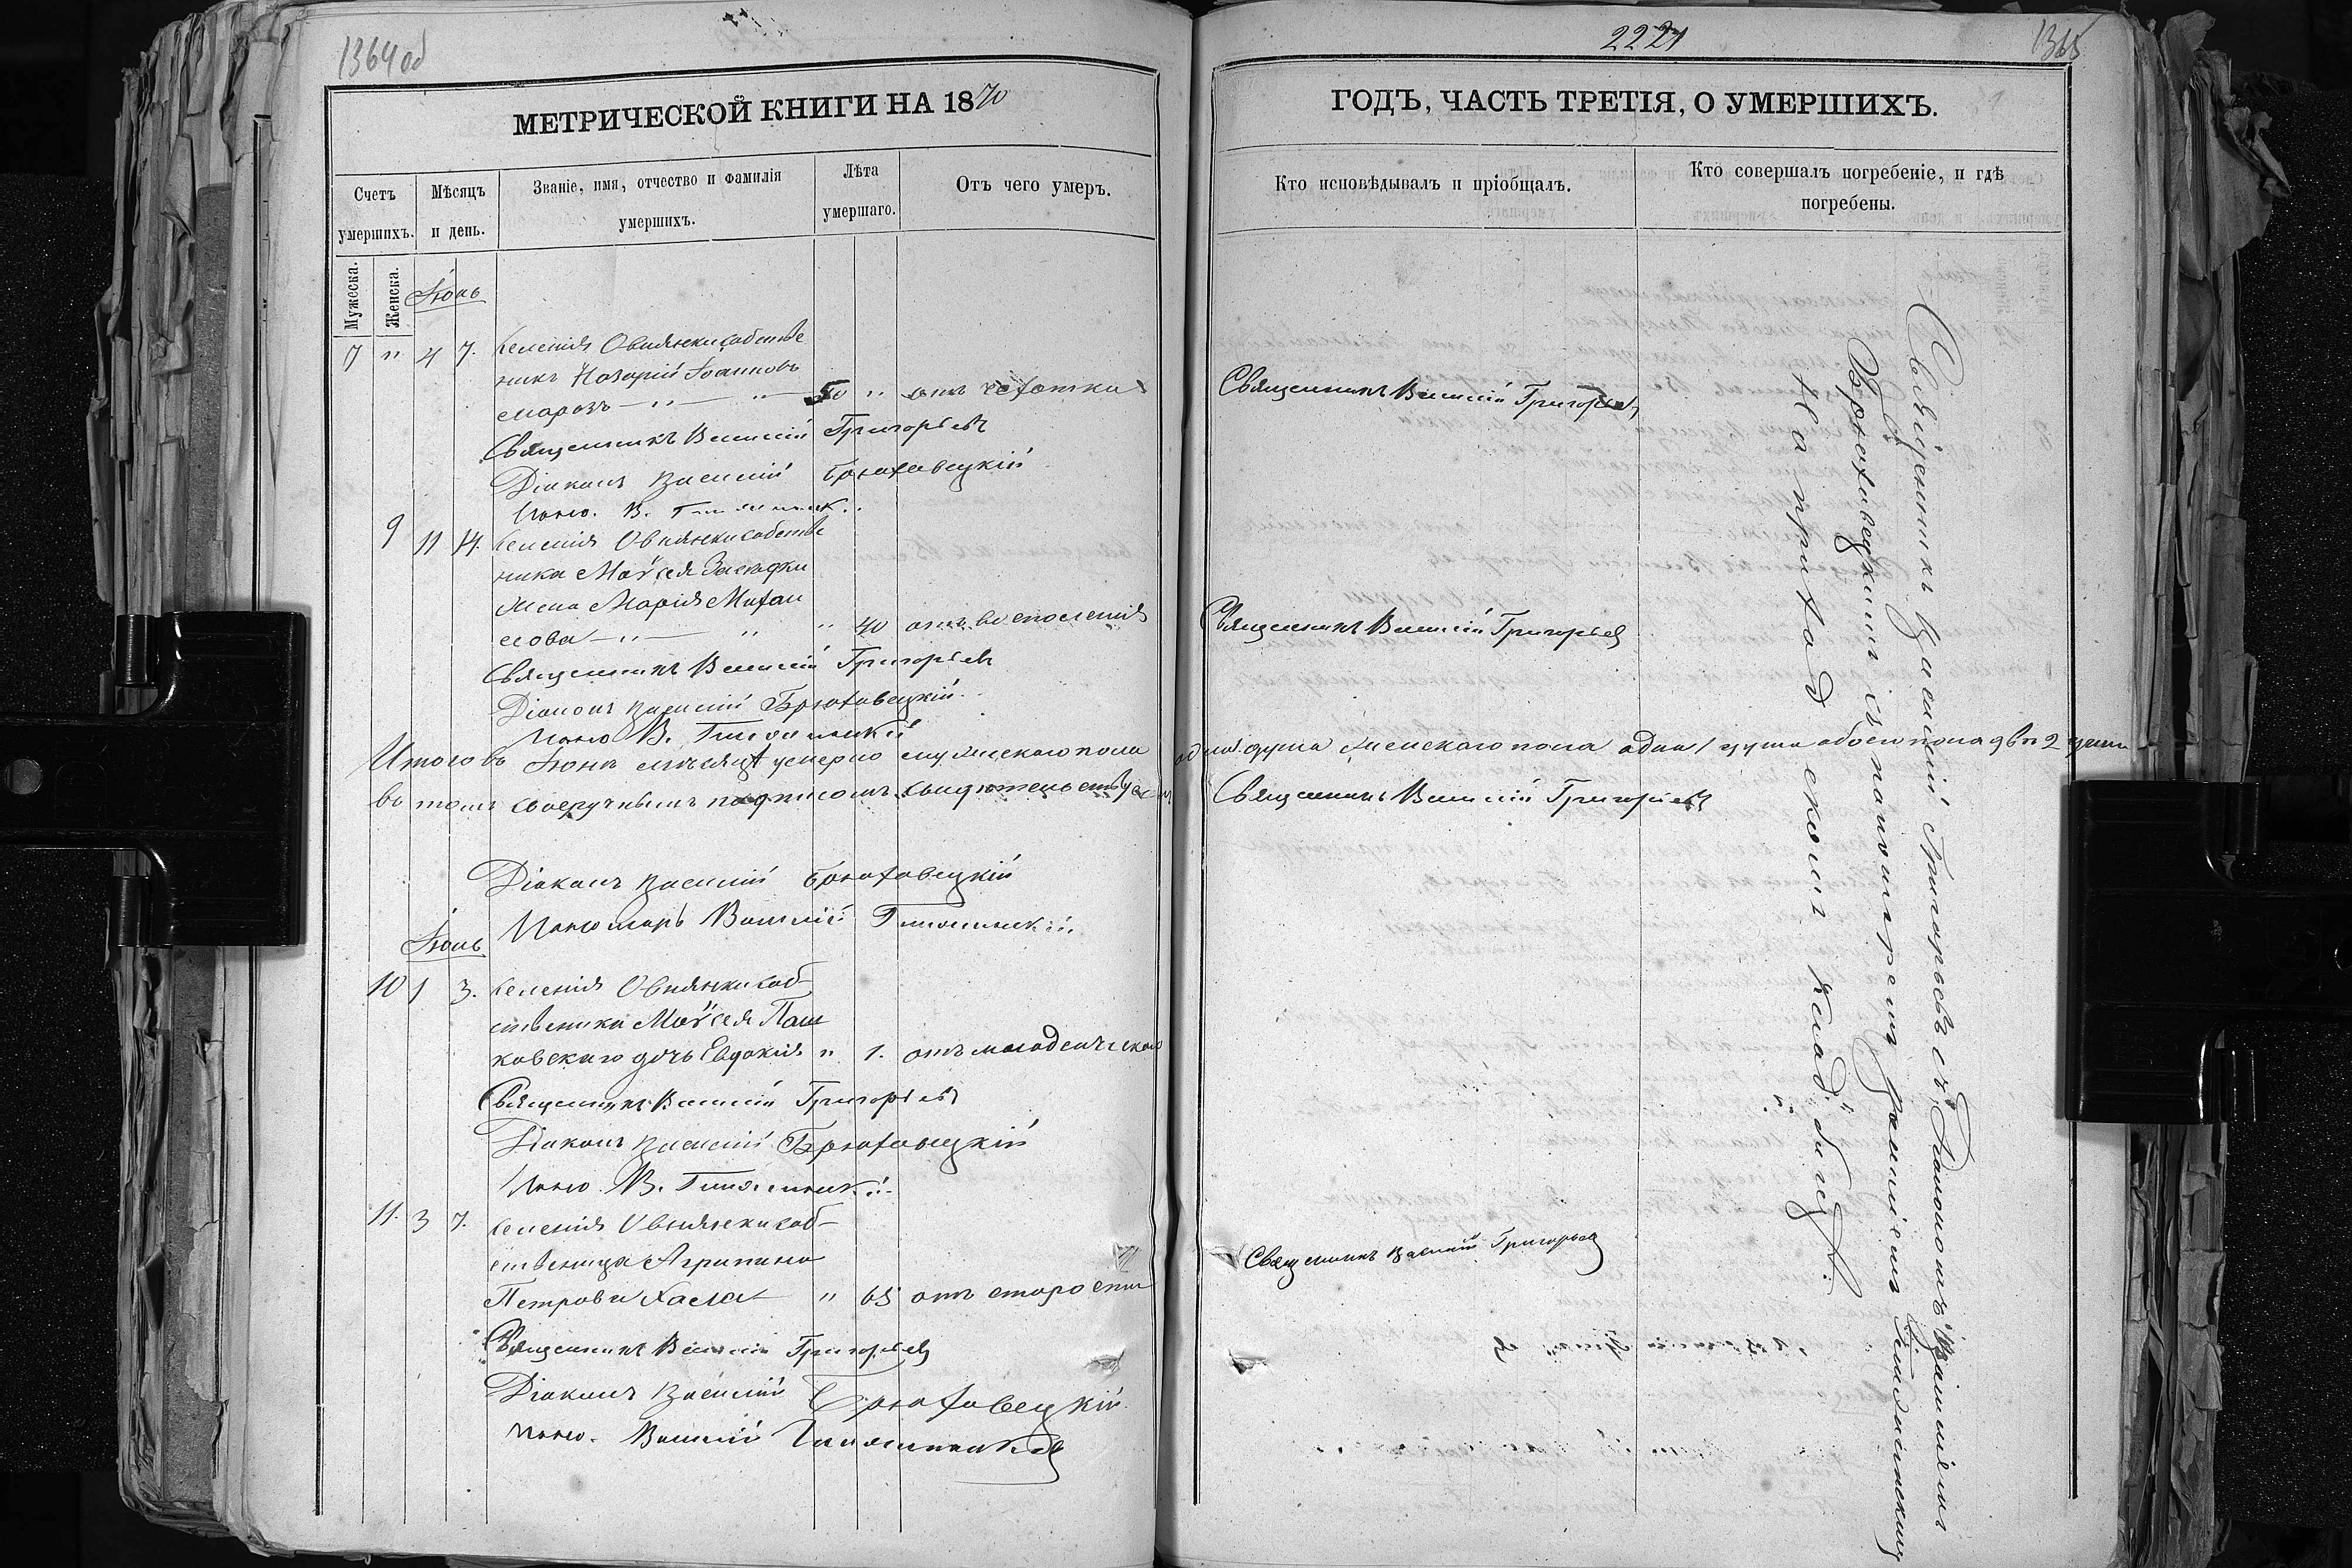 1364 об
МЕТРИЧЕСКОЙ КНИГИ НА 1870
Счетъ умершихъ.
Мѣсяцъ и день.
Званіе, имя, отчество и фамилія умершихъ.
Лѣта умершаго.
Отъ чего умеръ.
Мужеска.
Женска.
Іюнь
7 " 4 7. селенія Овнянки собстве
никъ Назарій Іоанновъ
Морозъ — " — " — 50 " отъ чахотки
Священникъ Василій Григорьевъ
Діаконъ Василій Брюховецкій
Поно. В.
9 11 14. селенія Овнянки собстве
ника Моѵсея
жена Марія Михаи
лова — " — " " 40 отъ воспаленія
Священникъ Василій Григорьевъ
Діаконъ Василій Брюховецкій
Поно. В.
Итого въ Іюнѣ мѣсяцѣ умерло мужескаго пола
въ томъ своеручнымъ подписомъ свидѣтельствуемъ
Діаконъ Василій Брюховецкій
Пономарь Василій
Іюль
10 1 3. селенія Овнянки соб-
ственика Моѵсея Паш
ковскаго дочь Евдокія " 1. отъ младенческаго
Священникъ Василій Григорьевъ
Діаконъ Василій Брюховецкій
Поно. В.
11. 3 7. селенія Овнянки соб-
ственица Агрипина
Петрова " 65 отъ старости
Священникъ Василій Григорьевъ
Діаконъ Василій Брюховецкій
Поно. Василій
2221
1365
ГОДЪ, ЧАСТЬ ТРЕТІЯ, О УМЕРШИХЪ.
Кто исповѣдывалъ и пріобщалъ.
Кто совершалъ погребеніе, и гдѣ погребены.
Священникъ Василій Григорьевъ
Священникъ Василій Григорьевъ
одна душа женскаго пола одна 1 душа обоего пола двѣ 2 души
Священникъ Василій Григорьевъ
Священникъ Василій Григорьевъ
Священникъ Василій Григорьевъ съ Діакономъ Василіемъ
Брюховецкимъ и съ пономаремъ Василіемъ
На приходскомъ кладбищѣ.